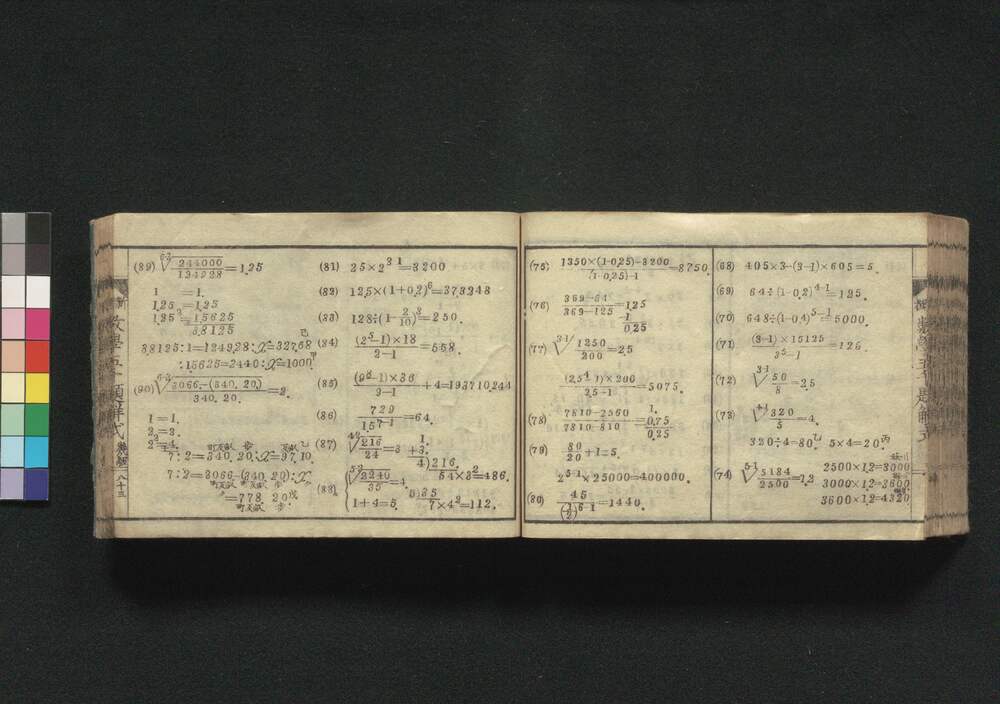 (68) 405×3-(3-1)×605=5.
(69) 64÷(1-0.2)^{4-1}=125.
(70) 648÷(1-0.4)^{5-1}=5000.
(71) \frac{(3-1)×15125}{3^{5}-1}=125.
(72) \sqrt[3-1]{\frac{50}{8}}=2.5
(73) \sqrt[4-1]{\frac{320}{5}}=4.
320÷4=80乙 5×4=20丙
(74) \sqrt[5-1]{\frac{5184}{2500}}=1.2
2500×1.2=3000
3000×1.2=3600
3600×1.2=4320.
(75) \frac{1350×(1-0.25)-3200}{(1-0.25)-1}=8750.
(76) \frac{369-64}{369-125}=1.25
-1
0.25
(77) \sqrt[3-1]{\frac{1250}{200}}=2.5
\frac{(2.5^{4}-1)×200}{2.5-1}=5075.
(78) \frac{7810-2560}{7810-810}=0.75
1.
0.25
(79) \frac{80}{20}+1=5.
2^{5-1}×25000=400000.
(80) \frac{45}{(\frac{1}{2})^{6-1}}=1440.
(81) 25×2^{3 1}=3200
(82) 125×(1+0.2)^{6}=373248
(83) 128÷(1-\frac{2}{10})^{3}=250.
(84) \frac{(2^{5}-1)×18}{2-1}=558.
(85) \frac{(9^{6}-1)×36}{9-1}+4=
(86) \frac{729}{1.5^{7-1}}=64.
(87) \sqrt[4-2]{\frac{216}{24}}=3
1.
+3.
4)216.
54×3^{2}=486.
(88) \sqrt[5-3]{\frac{2240}{35}}=4.
1+4=5.
5)35
7×4^{2}=112.
(89) \sqrt[6-2]{\frac{244000}{}}=1.25
1 =1.
1.25 =1.25
1.25^{2}=1.5625
3.8125
3.8125:1=124928:x=32768己
:1.5625=2440:x=1000甲
(90) \sqrt[6-3]{\frac{3066-(340.20.)}{340.20.}}=2.
1=1.
2=2.
2^{2}=4.
7:2=340.20.:x=97.10.乙
7:2=3066-(340.20):x
=778.20.戊
町反畝 步